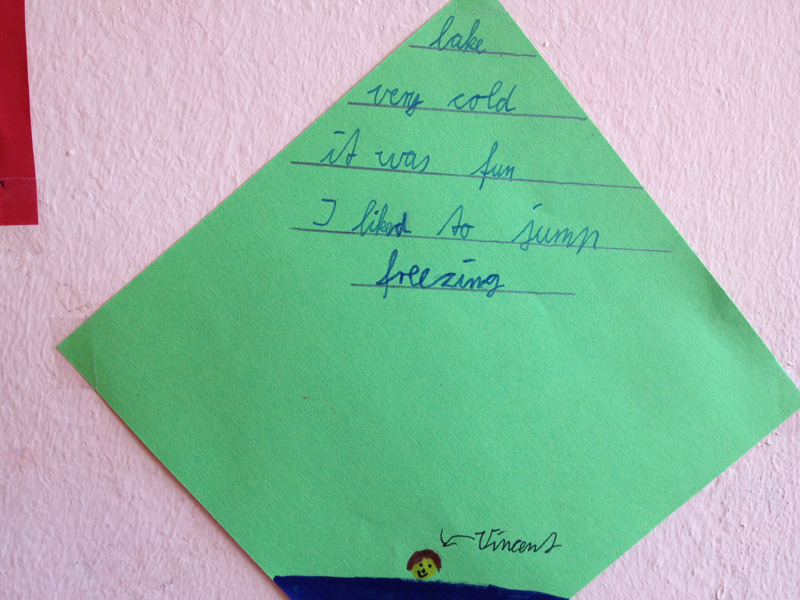 lake
very cold
it was fun
I liked to jump
freezing
Vincent